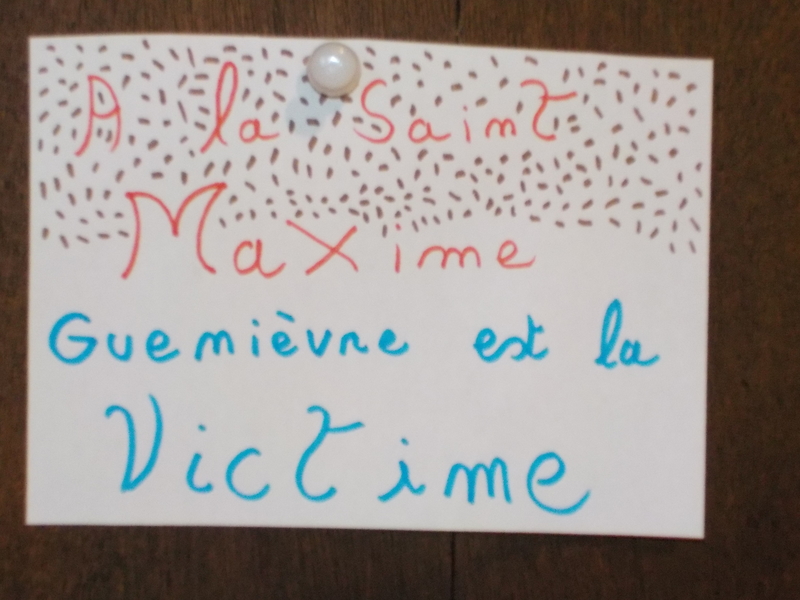 A la Saint
Maxime
Guenièvre est la
Victime